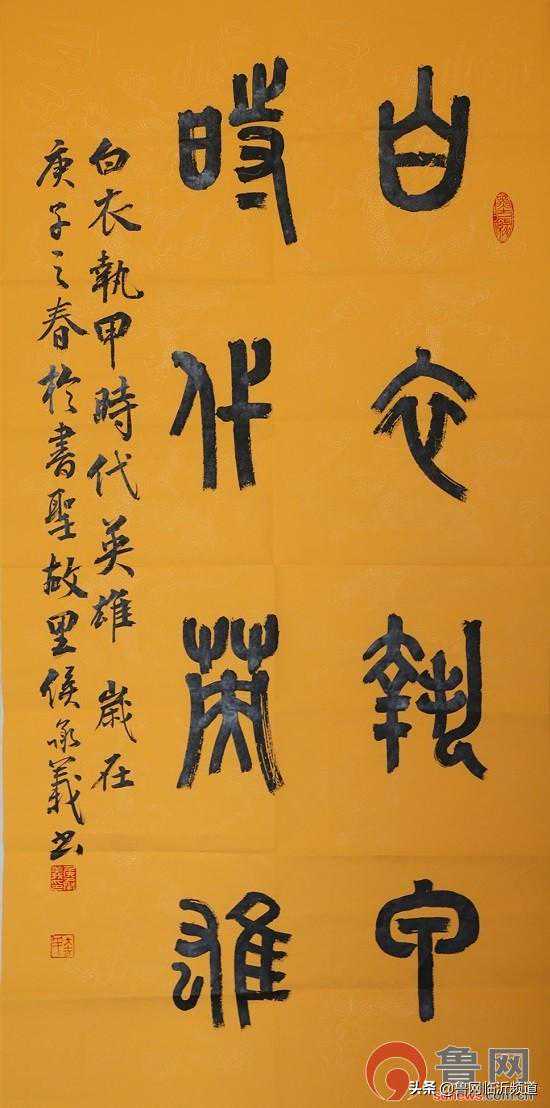 白衣執甲
時代英雄
白衣執甲時代英雄 歲在
庚子之春於書聖故里侯承義书
鲁网
头条 @鲁网临沂频道
sdnews.com.cn